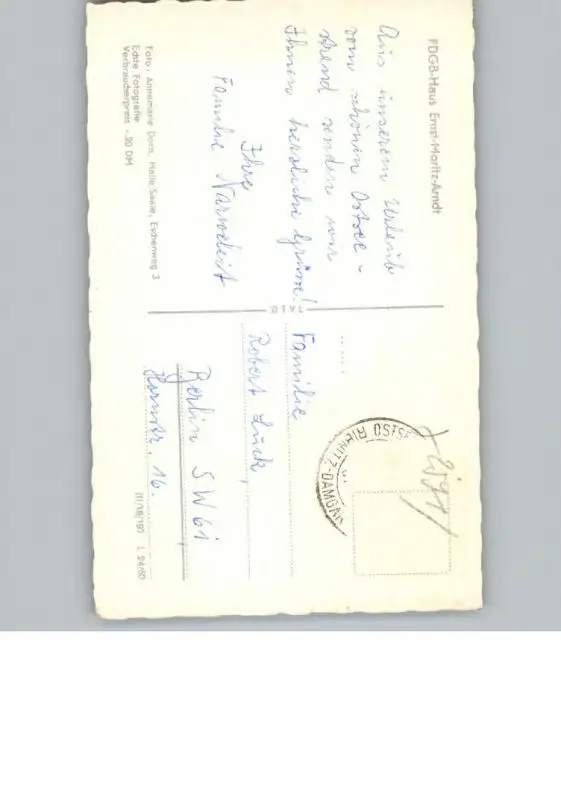 FDGB-Haus Ernst-Moritz-Arndt
Aus unserem Urlaub
vom schönen Ostsee-
strand senden wir
Ihnen herzliche Grüsse!
Ihre
Familie
Foto: Annemarie Dorn, Halle/Saale, Eschenweg 3
Echte Fotografie
Verbraucherpreis -,20 DM
RIBNITZ-DAMGAR
Familie
Robert Lück,
Berlin SW 61
Hornstr. 16.
III/18/197 L 24/60